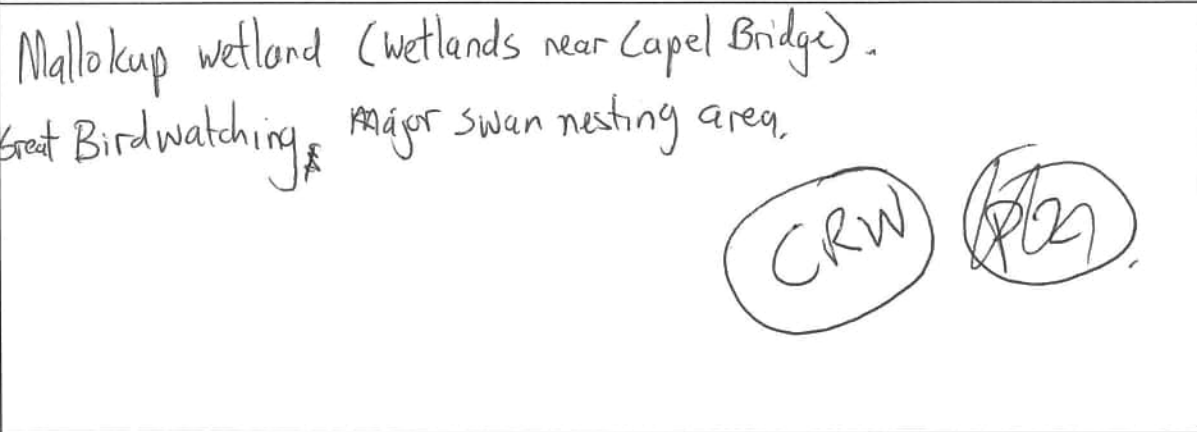 Mallokup wetland (wetlands near Capel Bridge).
Great Birdwatching, Major swan nesting area.
CRW